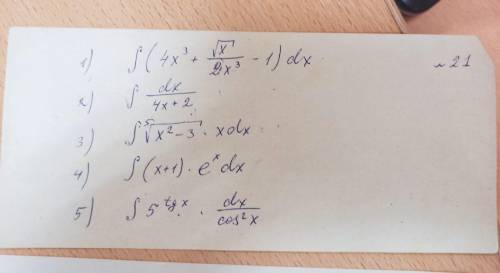 1) ∫(4x³ + √x/2x³ - 1)dx
№21
2) ∫ dx/4x+2
3) ∫ ⁵√x²-3 · xdx
4) ∫(x+1)·eˣdx
5) ∫5^tgx · dx/cos²x